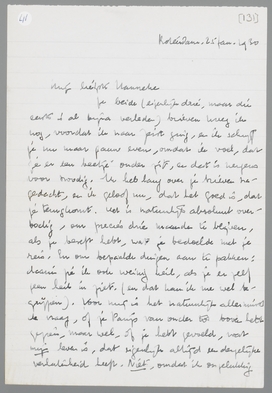 41
[131]
Rotterdam. 25 jan. 1950
mijn liefste Hanneke
je beide (eigenlijk drie, maar die
eerste is al bijna verleden) brieven kreeg ik
nog, voordat ik naar ging, en ik schrijf
je nu maar gauw even, omdat ik voel, dat
je er een beetje onder zit, en dat is nergens
voor nodig. Ik heb lang over je brieven na-
gedacht, en ik geloof nu, dat het goed is, dat
je terugkomt. Het is natuurlijk absoluut over-
bodig, om precies drie maanden te blijven,
als je beseft hebt, wat je bedoelde met je
reis. Om een bepaalde dingen aan te pakken:
daarin zie ik ook weinig heil, als je er zelf
geen heil in ziet. (en dat kan ik me wel be-
grijpen). Voor mij is het natuurlijk allerminst
de vraag, of je Parijs van onder tot boven hebt
gezien, maar wel, of je hebt gevoeld, wat
mijn leven is, dat eigenlijk altijd een dergelijke
verlatenheid heeft. Niet, omdat ik ongelukkig